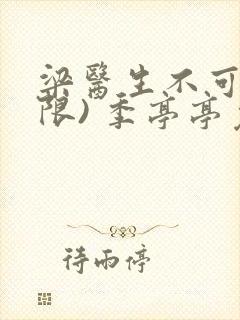 梁醫生不可
限)季亭亭
待雨停